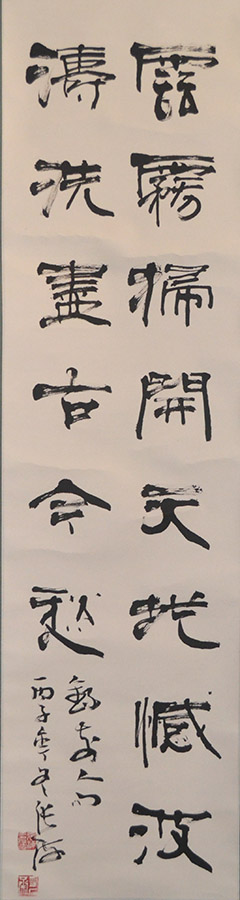 雲霧掃開天地憾波
濤洗盡古今愁
人句
丙子